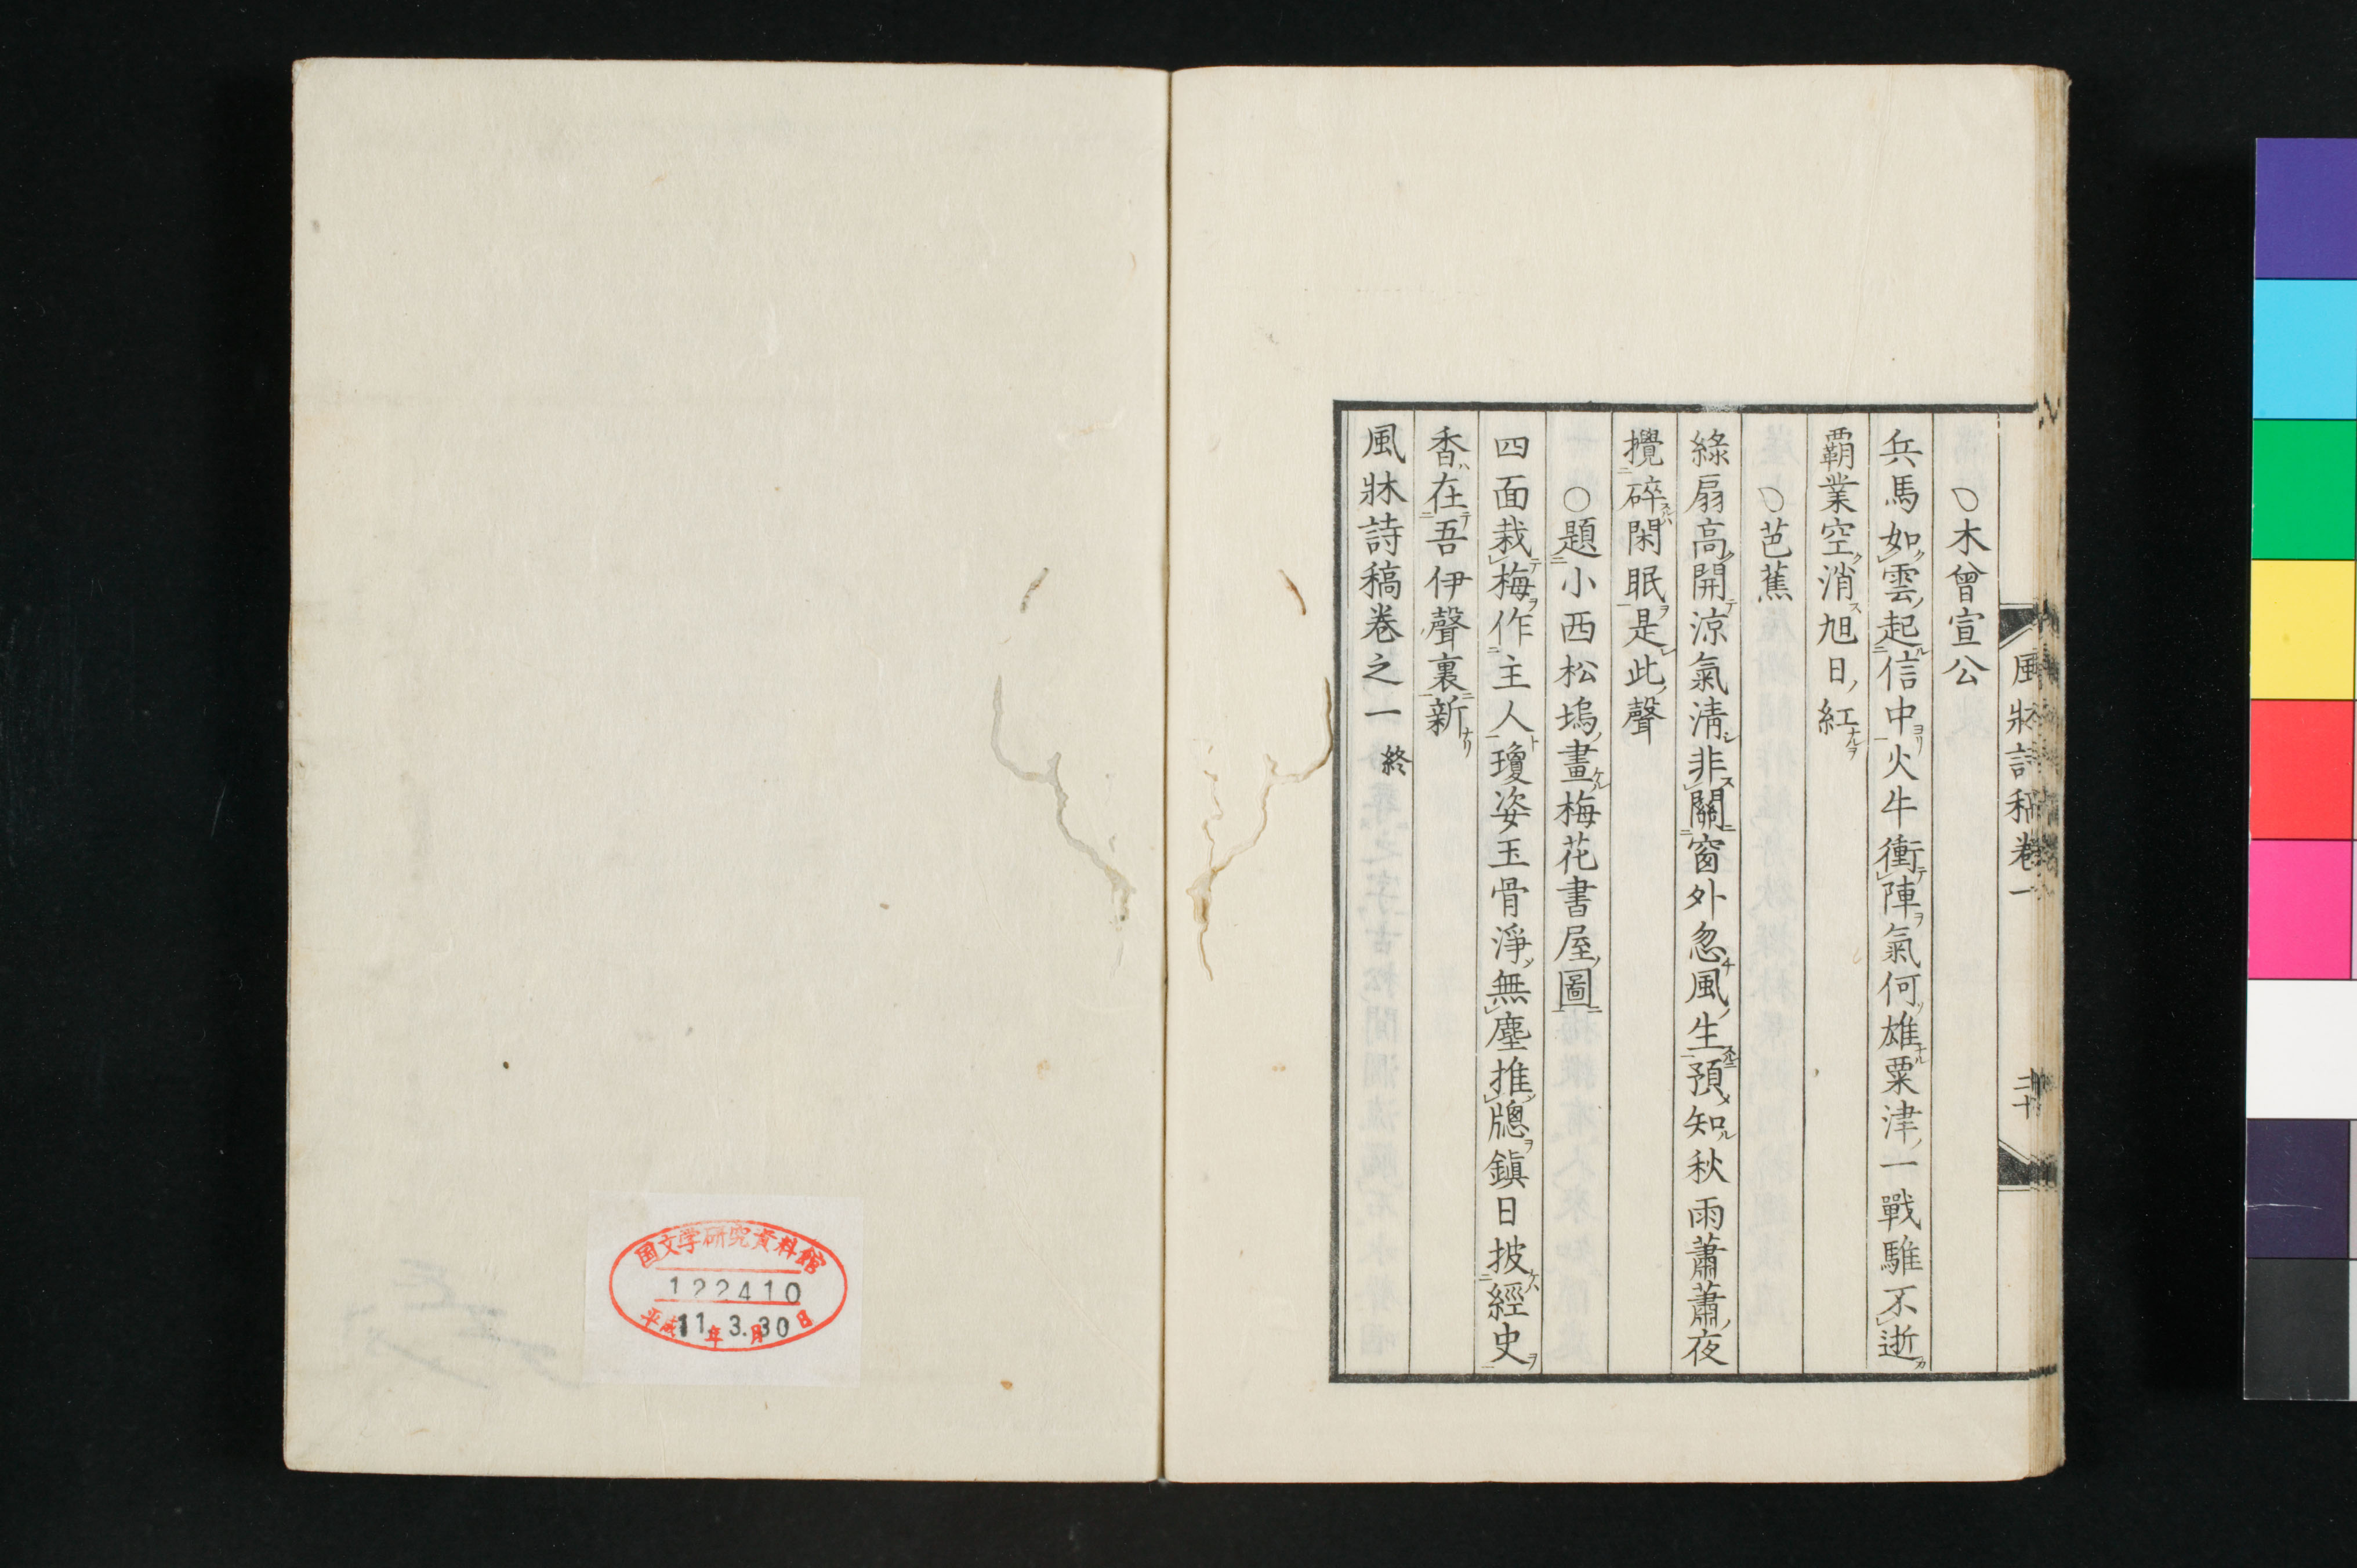 風牀詩稿卷一
二十
〇木曾宣公
兵馬如雲起信中火牛衝陣氣何雄粟津一戰騅不逝
覇業空消旭日紅
〇芭蕉
綠扇高開涼氣清非關窗外忽風生預知秋雨蕭蕭夜
攪碎閑眠是此聲
〇題小西松塢畫梅花書屋圖
四面栽梅作主人瓊姿玉骨淨無塵推牎鎮日披經史
香在吾伊聲裏新
風牀詩稿卷之一 終
国文学研究資料館
122410
平成11年3.月30日